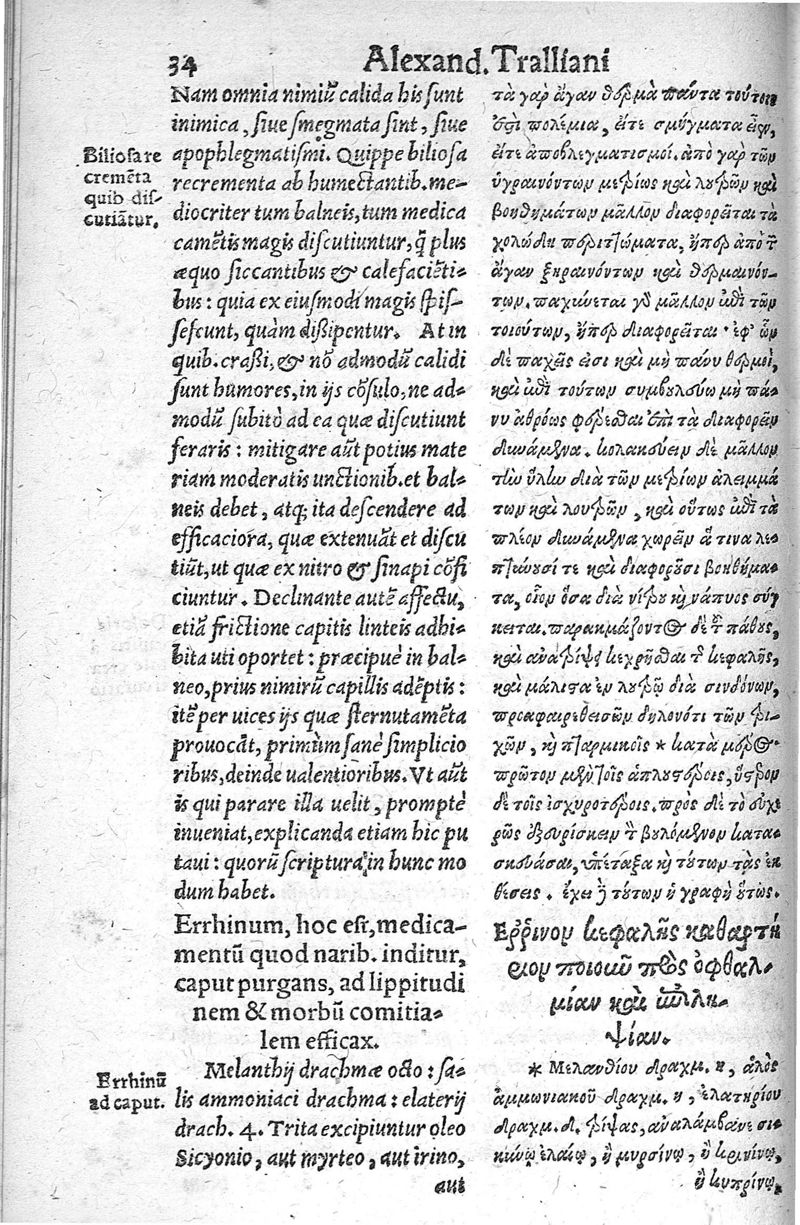 34
Alexand. Tralliani
Nam omnia nimiū calida his sunt
inimica, siue smegmata sint, siue
apophlegmatismi. Quippe biliosa
recrementa ab humectantib. me-
diocriter tum balneis, tum medica
camētis magis discutiuntur, q̄ plus
æquo siccantibus & calefaciēti-
bus: quia ex eiusmodi magis spis-
sescunt, quàm dissipentur. At in
quib. crassi, & nō admodū calidi
sunt humores, in ijs cōsulo, ne ad-
modū subitò ad ea quæ discutiunt
feraris: mitigare aūt potius mate
riam moderatis unctionib. et bal-
neis debet, atq; ita descendere ad
efficaciora, quæ extenuāt et discu
tiūt, ut quæ ex nitro & sinapi cōfi
ciuntur. Declinante autē affectu,
etiā frictione capitis linteis adhi-
bita uti oportet: præcipuè in bal-
neo, prius nimirū capillis adēptis:
itē per uices ijs quæ sternutamēta
prouocāt, primùm sanè simplicio
ribus, deinde ualentioribus. Vt aūt
is qui parare illa uelit, promptè
inueniat, explicanda etiam hic pu
taui: quorū scriptura in hunc mo
dum habet.
Errhinum, hoc est, medica-
mentū quod narib. inditur,
caput purgans, ad lippitudi
nem & morbū comitia-
lem efficax.
Melanthij drachmæ octo: sa-
lis ammoniaci drachma: elaterij
drach. 4. Trita excipiuntur oleo
Sicyonio, aut myrteo, aut irino,
aut
Biliosa re
cremēta
quib dis-
cutiātur.
Errhinū
ad caput.
τὰ γαρ ἄγαν θερμὰ πάντα τούτοις
ἐστὶ πολέμια, εἴτε σμήγματα εἶεν,
εἴτε ἀποφλεγματισμοί. ἀπὸ γαρ τῶν
ὑγραινόντων μετρίως καὶ λουτρῶν καὶ
βοηθημάτων μᾶλλον διαφορεῖται τὰ
χολώδη περιττώματα, ἤπερ ἀπὸ τ
ἄγαν ξηραινόντων καὶ θερμαινόν-
των. παχύνεται γὸ μᾶλλον ἀπὸ τῶν
τοιούτων, ἤπερ διαφορεῖται. ἐφ' ὧν
δὲ παχεῖς εἰσι καὶ μὴ πάνυ θερμοὶ,
καὶ ἀπὸ τούτων συμβουλεύω μὴ πά-
νυ ἀθρόως φέρεσθαι ἐπὶ τὰ διαφορεῖν
δυνάμενα. κολακεύειν δὲ μᾶλλον
τὴν ὕλην διὰ τῶν μετρίων ἀλειμμά
των καὶ λουτρῶν, καὶ οὕτως ἐπὶ τὰ
πλέον δυνάμενα χωρεῖν ἅ τινα λε-
πτύνουσί τε καὶ διαφοροῦσι βοηθήμα-
τα, οἷον ὅσα διὰ νίτρου κὴ νάπυος σύγ
κειται. παρακμάζοντος δὲ τ πάθους,
καὶ ἀνατρίψει κεχρῆσθαι τ κεφαλῆς,
καὶ μάλιστα ἐν λουτρῷ διὰ σινδόνων,
προαφαιρεθεισῶν δηλονότι τῶν τρι-
χῶν, κὴ πταρμικοῖς * κατὰ μέρος
πρῶτον μὲν τοῖς ἁπλουστέροις, ὕστερον
δὲ τοῖς ἰσχυροτέροις. πρὸς δὲ τὸ εὐχε
ρῶς ἐξευρίσκειν τ βουλόμενον κατα-
σκευάσαι, ὑπέταξα κὴ τούτων τὰς ἐκ
θέσεις. ἔχει ἢ τούτων ἡ γραφὴ οὕτως.
Ερρινον κεφαλῆς καθαρτή
ριον ποιοῦν πρὸς ὀφθαλ-
μίαν καὶ ἐπιλη-
ψίαν.
* Μελανθίου δραχμ. η, ἁλὸς
ἀμμωνιακοῦ δραχμ. η, ἐλατηρίου
δραχμ. δ. τρίψας, ἀναλάμβανε σι-
κυωνίῳ ἐλαίῳ, ἢ μυρσίνῳ, ἢ κρινίνῳ,
ἢ κυπρίνῳ,